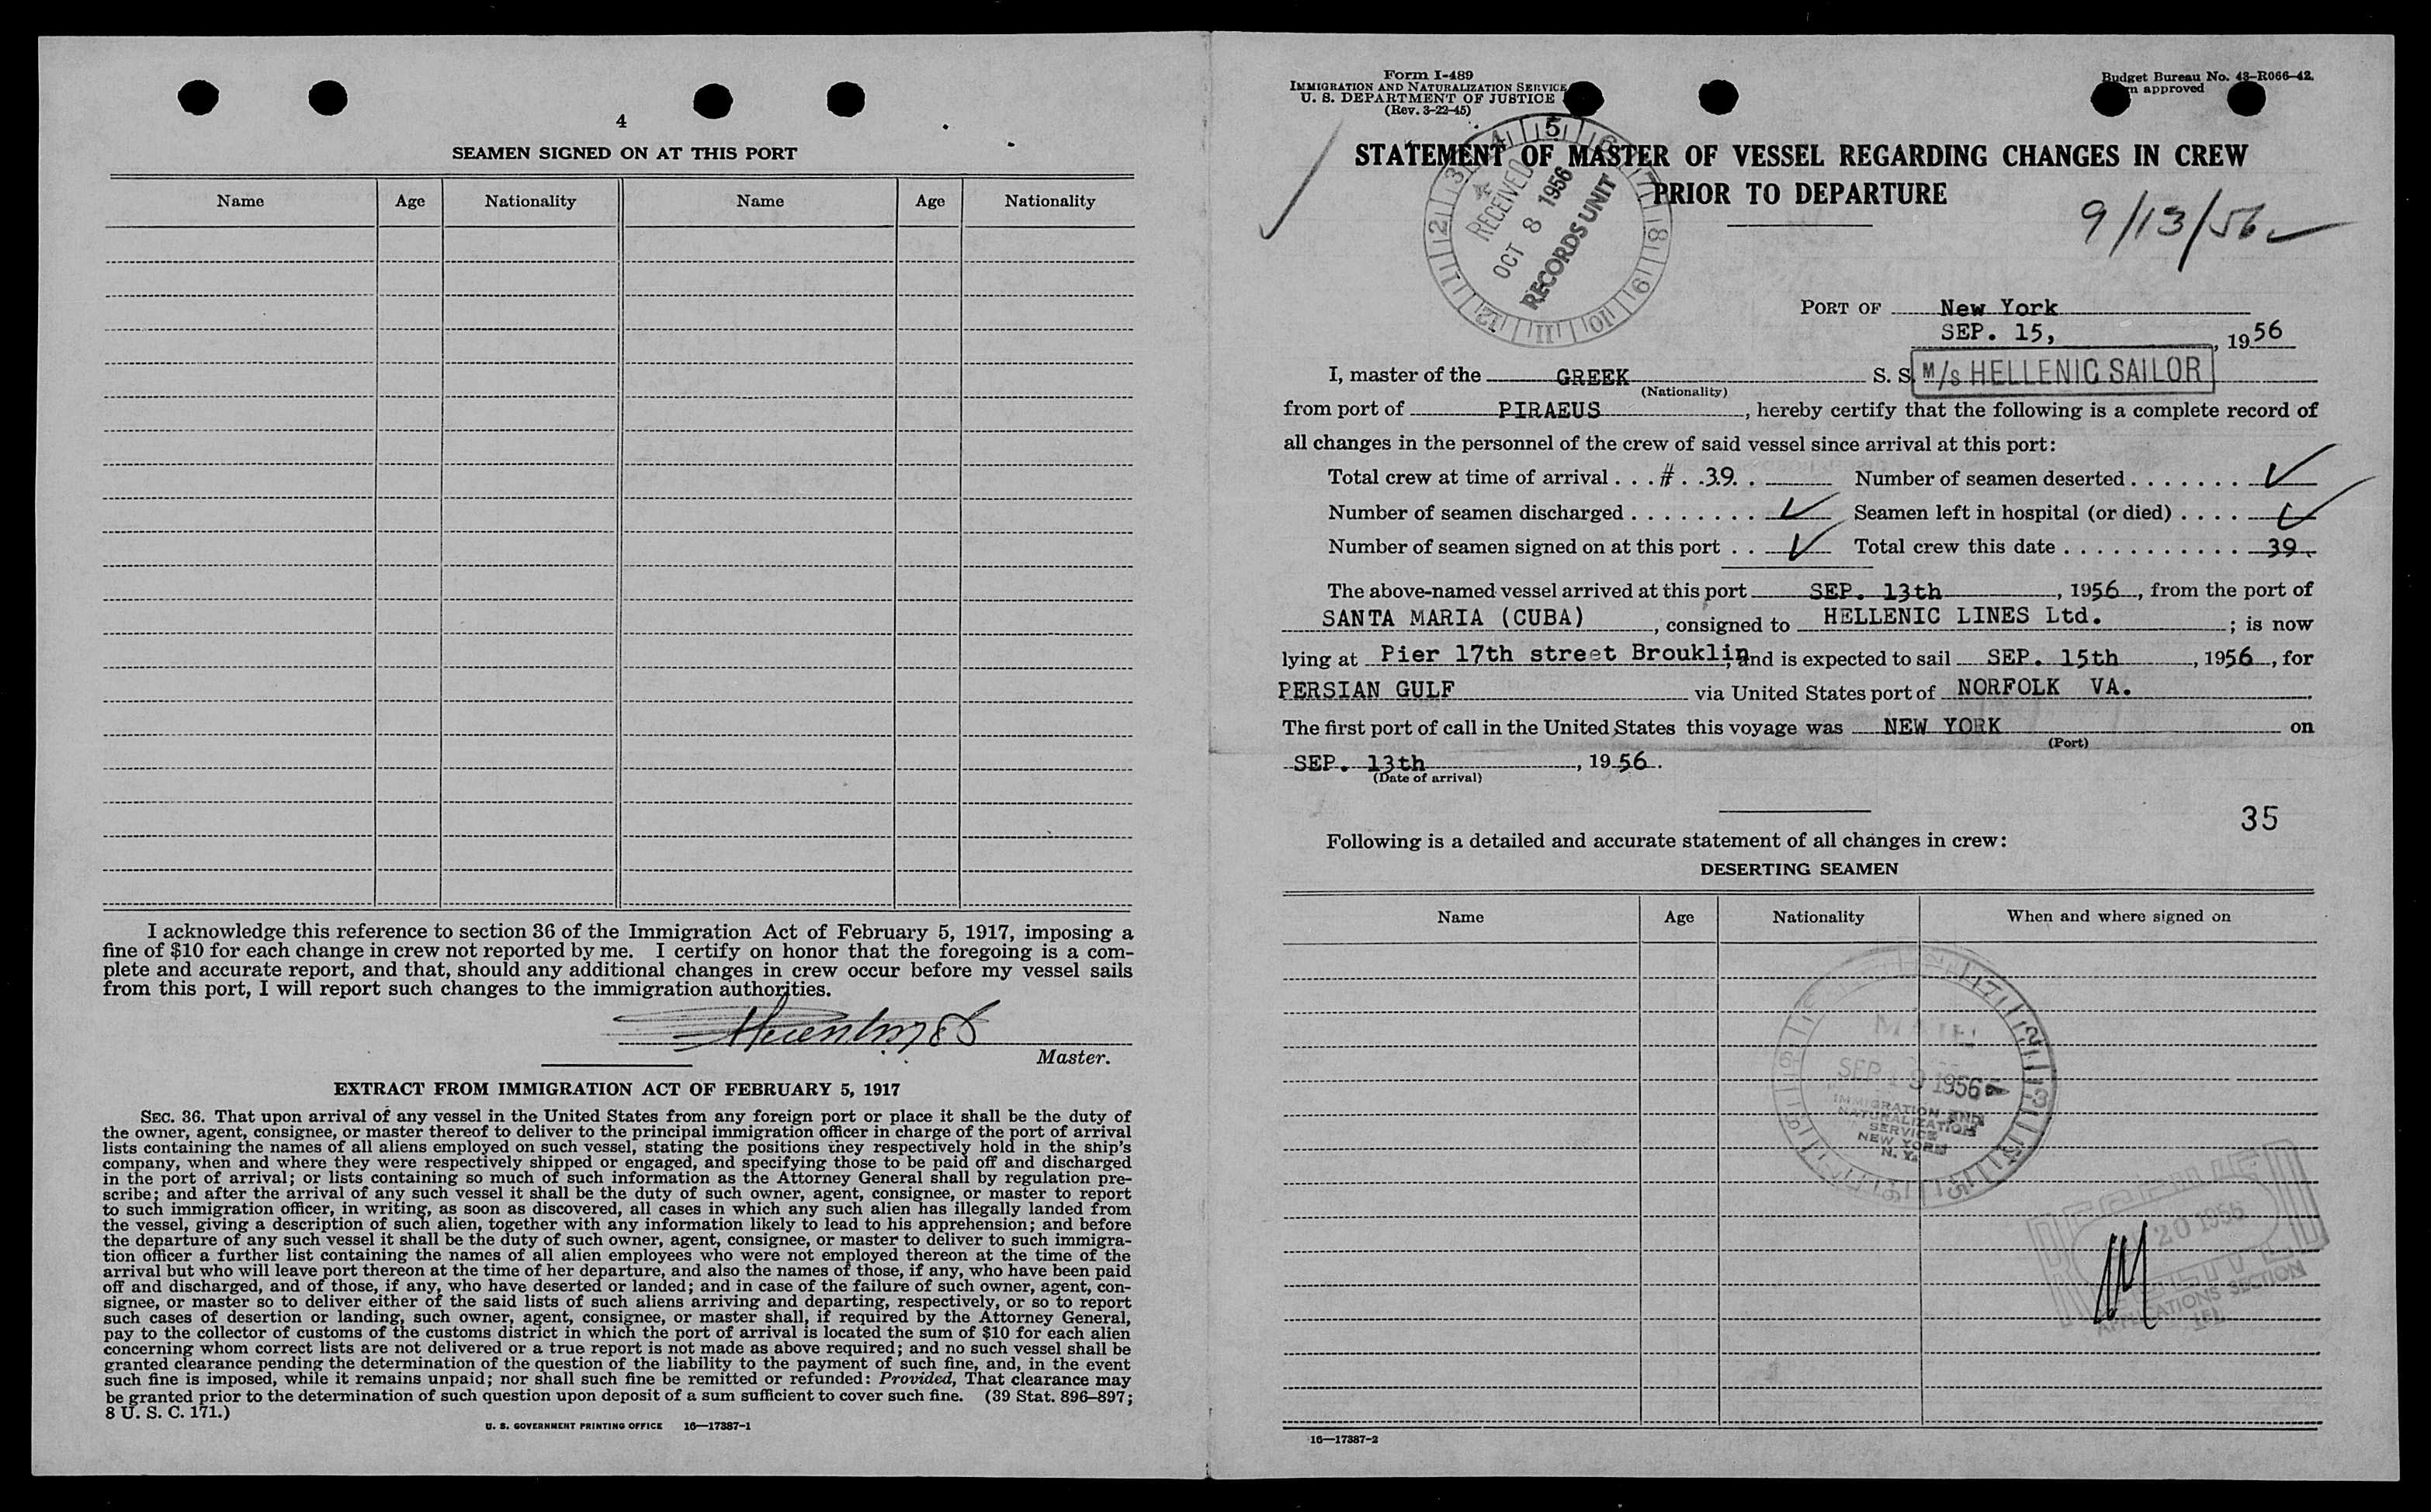 4
SEAMEN SIGNED ON AT THIS PORT
Name Age Nationality Name Age Nationality
I acknowledge this reference to section 36 of the Immigration Act of February 5, 1917, imposing a
fine of $10 for each change in crew not reported by me. I certify on honor that the foregoing is a com-
plete and accurate report, and that, should any additional changes in crew occur before my vessel sails
from this port, I will report such changes to the immigration authorities.
Master.
EXTRACT FROM IMMIGRATION ACT OF FEBRUARY 5, 1917
SEC. 36. That upon arrival of any vessel in the United States from any foreign port or place it shall be the duty of
the owner, agent, consignee, or master thereof to deliver to the principal immigration officer in charge of the port of arrival
lists containing the names of all aliens employed on such vessel, stating the positions they respectively hold in the ship's
company, when and where they were respectively shipped or engaged, and specifying those to be paid off and discharged
in the port of arrival; or lists containing so much of such information as the Attorney General shall by regulation pre-
scribe; and after the arrival of any such vessel it shall be the duty of such owner, agent, consignee, or master to report
to such immigration officer, in writing, as soon as discovered, all cases in which any such alien has illegally landed from
the vessel, giving a description of such alien, together with any information likely to lead to his apprehension; and before
the departure of any such vessel it shall be the duty of such owner, agent, consignee, or master to deliver to such immigra-
tion officer a further list containing the names of all alien employees who were not employed thereon at the time of the
arrival but who will leave port thereon at the time of her departure, and also the names of those, if any, who have been paid
off and discharged, and of those, if any, who have deserted or landed; and in case of the failure of such owner, agent, con-
signee, or master so to deliver either of the said lists of such aliens arriving and departing, respectively, or so to report
such cases of desertion or landing, such owner, agent, consignee, or master shall, if required by the Attorney General,
pay to the collector of customs of the customs district in which the port of arrival is located the sum of $10 for each alien
concerning whom correct lists are not delivered or a true report is not made as above required; and no such vessel shall be
granted clearance pending the determination of the question of the liability to the payment of such fine, and, in the event
such fine is imposed, while it remains unpaid; nor shall such fine be remitted or refunded: Provided, That clearance may
be granted prior to the determination of such question upon deposit of a sum sufficient to cover such fine. (39 Stat. 896–897;
8 U. S. C. 171.)
U. S. GOVERNMENT PRINTING OFFICE 16—17387-1
Form I-489
IMMIGRATION AND NATURALIZATION SERVICE
U. S. DEPARTMENT OF JUSTICE
(Rev. 3-22-45)
Budget Bureau No. 43-R066-42.
approved
STATEMENT OF MASTER OF VESSEL REGARDING CHANGES IN CREW
PRIOR TO DEPARTURE
RECEIVED
OCT 8 1956
RECORDS UNIT
9/13/56
PORT OF New York
SEP. 15, , 1956
I, master of the GREEK S. S. M/s HELLENIC SAILOR
(Nationality)
from port of PIRAEUS, hereby certify that the following is a complete record of
all changes in the personnel of the crew of said vessel since arrival at this port:
Total crew at time of arrival . . . # . .39. . Number of seamen deserted . . . . . . .
Number of seamen discharged . . . . . . . . Seamen left in hospital (or died) . . . .
Number of seamen signed on at this port . . Total crew this date . . . . . . . . . . . . 39
The above-named vessel arrived at this port SEP. 13th, 1956, from the port of
SANTA MARIA (CUBA), consigned to HELLENIC LINES Ltd. ; is now
lying at Pier 17th street Brouklin, and is expected to sail SEP. 15th, 1956, for
PERSIAN GULF via United States port of NORFOLK VA.
The first port of call in the United States this voyage was NEW YORK on
(Port)
SEP. 13th, 1956.
(Date of arrival)
35
Following is a detailed and accurate statement of all changes in crew:
DESERTING SEAMEN
Name Age Nationality When and where signed on
MAIL
SEP 1956
IMMIGRATION AND
NATURALIZATION
SERVICE
NEW YORK
N. Y.
RECEIVED
20 1956
APPLICATIONS SECTION
16—17387-2